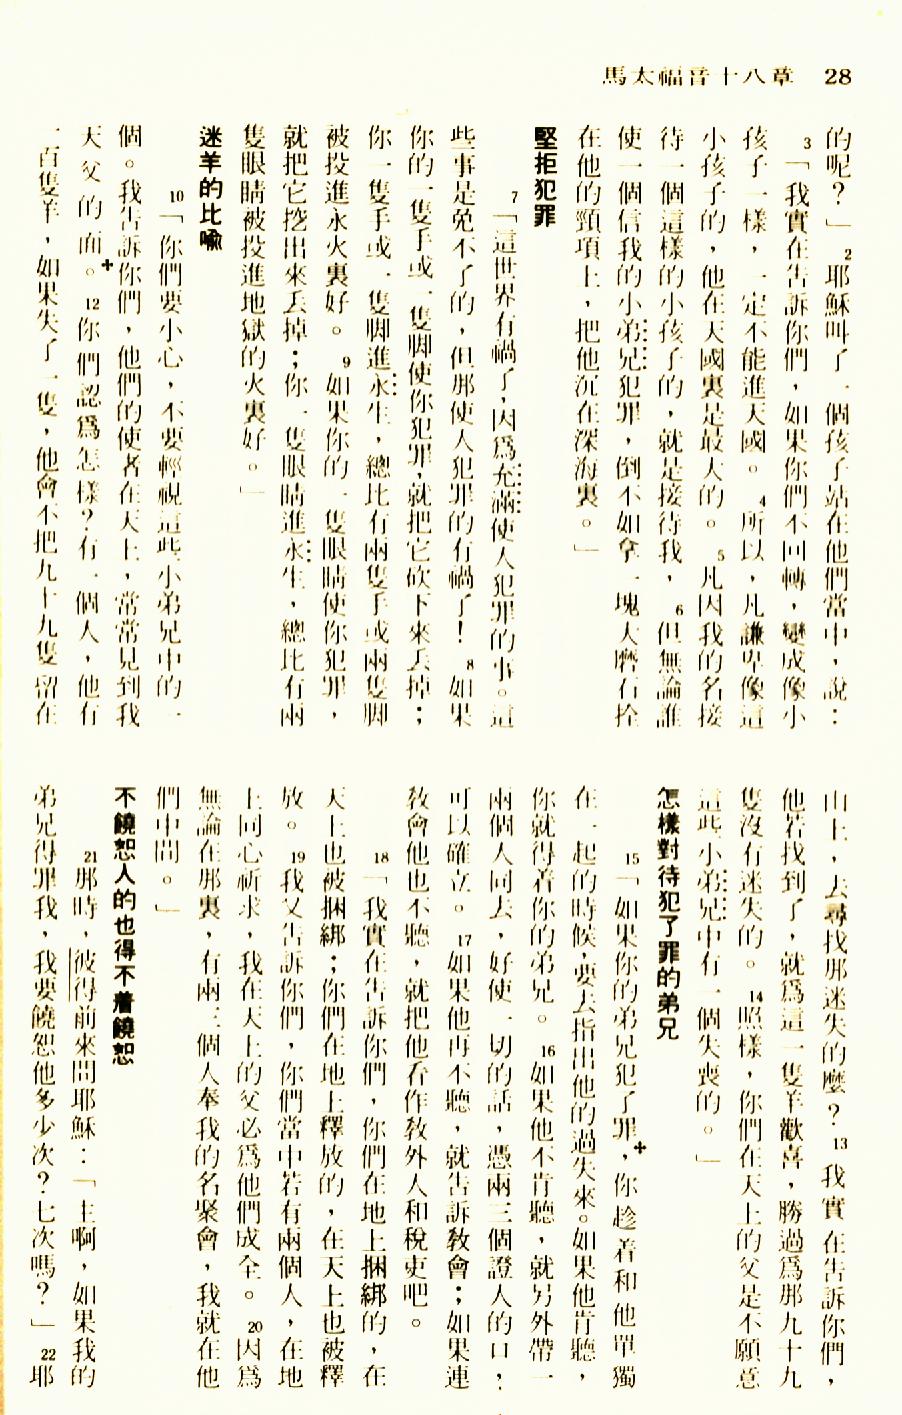 馬太福音十八章 28
的呢？」2耶穌叫了一個孩子站在他們當中，說：
3「我實在告訴你們，如果你們不回轉，變成像小
孩子一樣，一定不能進天國。4所以，凡謙卑像這
小孩子的，他在天國裏是最大的。5凡因我的名接
待一個這樣的小孩子的，就是接待我，6但無論誰
使一個信我的小弟兄犯罪，倒不如拿一塊大磨石拴
在他的頸項上，把他沉在深海裏。」
堅拒犯罪
7「這世界有禍了，因爲充滿使人犯罪的事。這
些事是免不了的，但那使人犯罪的有禍了！8如果
你的一隻手或一隻脚使你犯罪，就把它砍下來丢掉；
你一隻手或一隻脚進永生，總比有兩隻手或兩隻脚
被投進永火裏好。9如果你的一隻眼睛使你犯罪，
就把它挖出來丢掉；你一隻眼睛進永生，總比有兩
隻眼睛被投進地獄的火裏好。」
迷羊的比喩
10「你們要小心，不要輕視這些小弟兄中的一
個。我告訴你們，他們的使者在天上，常常見到我
天父的面。✚12你們認爲怎樣？有一個人，他有
一百隻羊，如果失了一隻，他會不把九十九隻留在
山上，去尋找那迷失的麼？13我實在告訴你們，
他若找到了，就爲這一隻羊歡喜，勝過爲那九十九
隻沒有迷失的。14照樣，你們在天上的父是不願意
這些小弟兄中有一個失喪的。」
怎樣對待犯了罪的弟兄
15「如果你的弟兄犯了罪✚，你趁着和他單獨
在一起的時候，要去指出他的過失來。如果他肯聽，
你就得着你的弟兄。16如果他不肯聽，就另外帶一
兩個人同去，好使一切的話，憑兩三個證人的口，
可以確立。17如果他再不聽，就告訴敎會；如果連
敎會他也不聽，就把他看作敎外人和稅吏吧。
18「我實在告訴你們，你們在地上捆綁的，在
天上也被捆綁；你們在地上釋放的，在天上也被釋
放。19我又告訴你們，你們當中若有兩個人，在地
上同心祈求，我在天上的父必爲他們成全。20因爲
無論在那裏，有兩三個人奉我的名聚會，我就在他
們中間。」
不饒恕人的也得不着饒恕
21那時，彼得前來問耶穌：「主啊，如果我的
弟兄得罪我，我要饒恕他多少次？七次嗎？」22耶